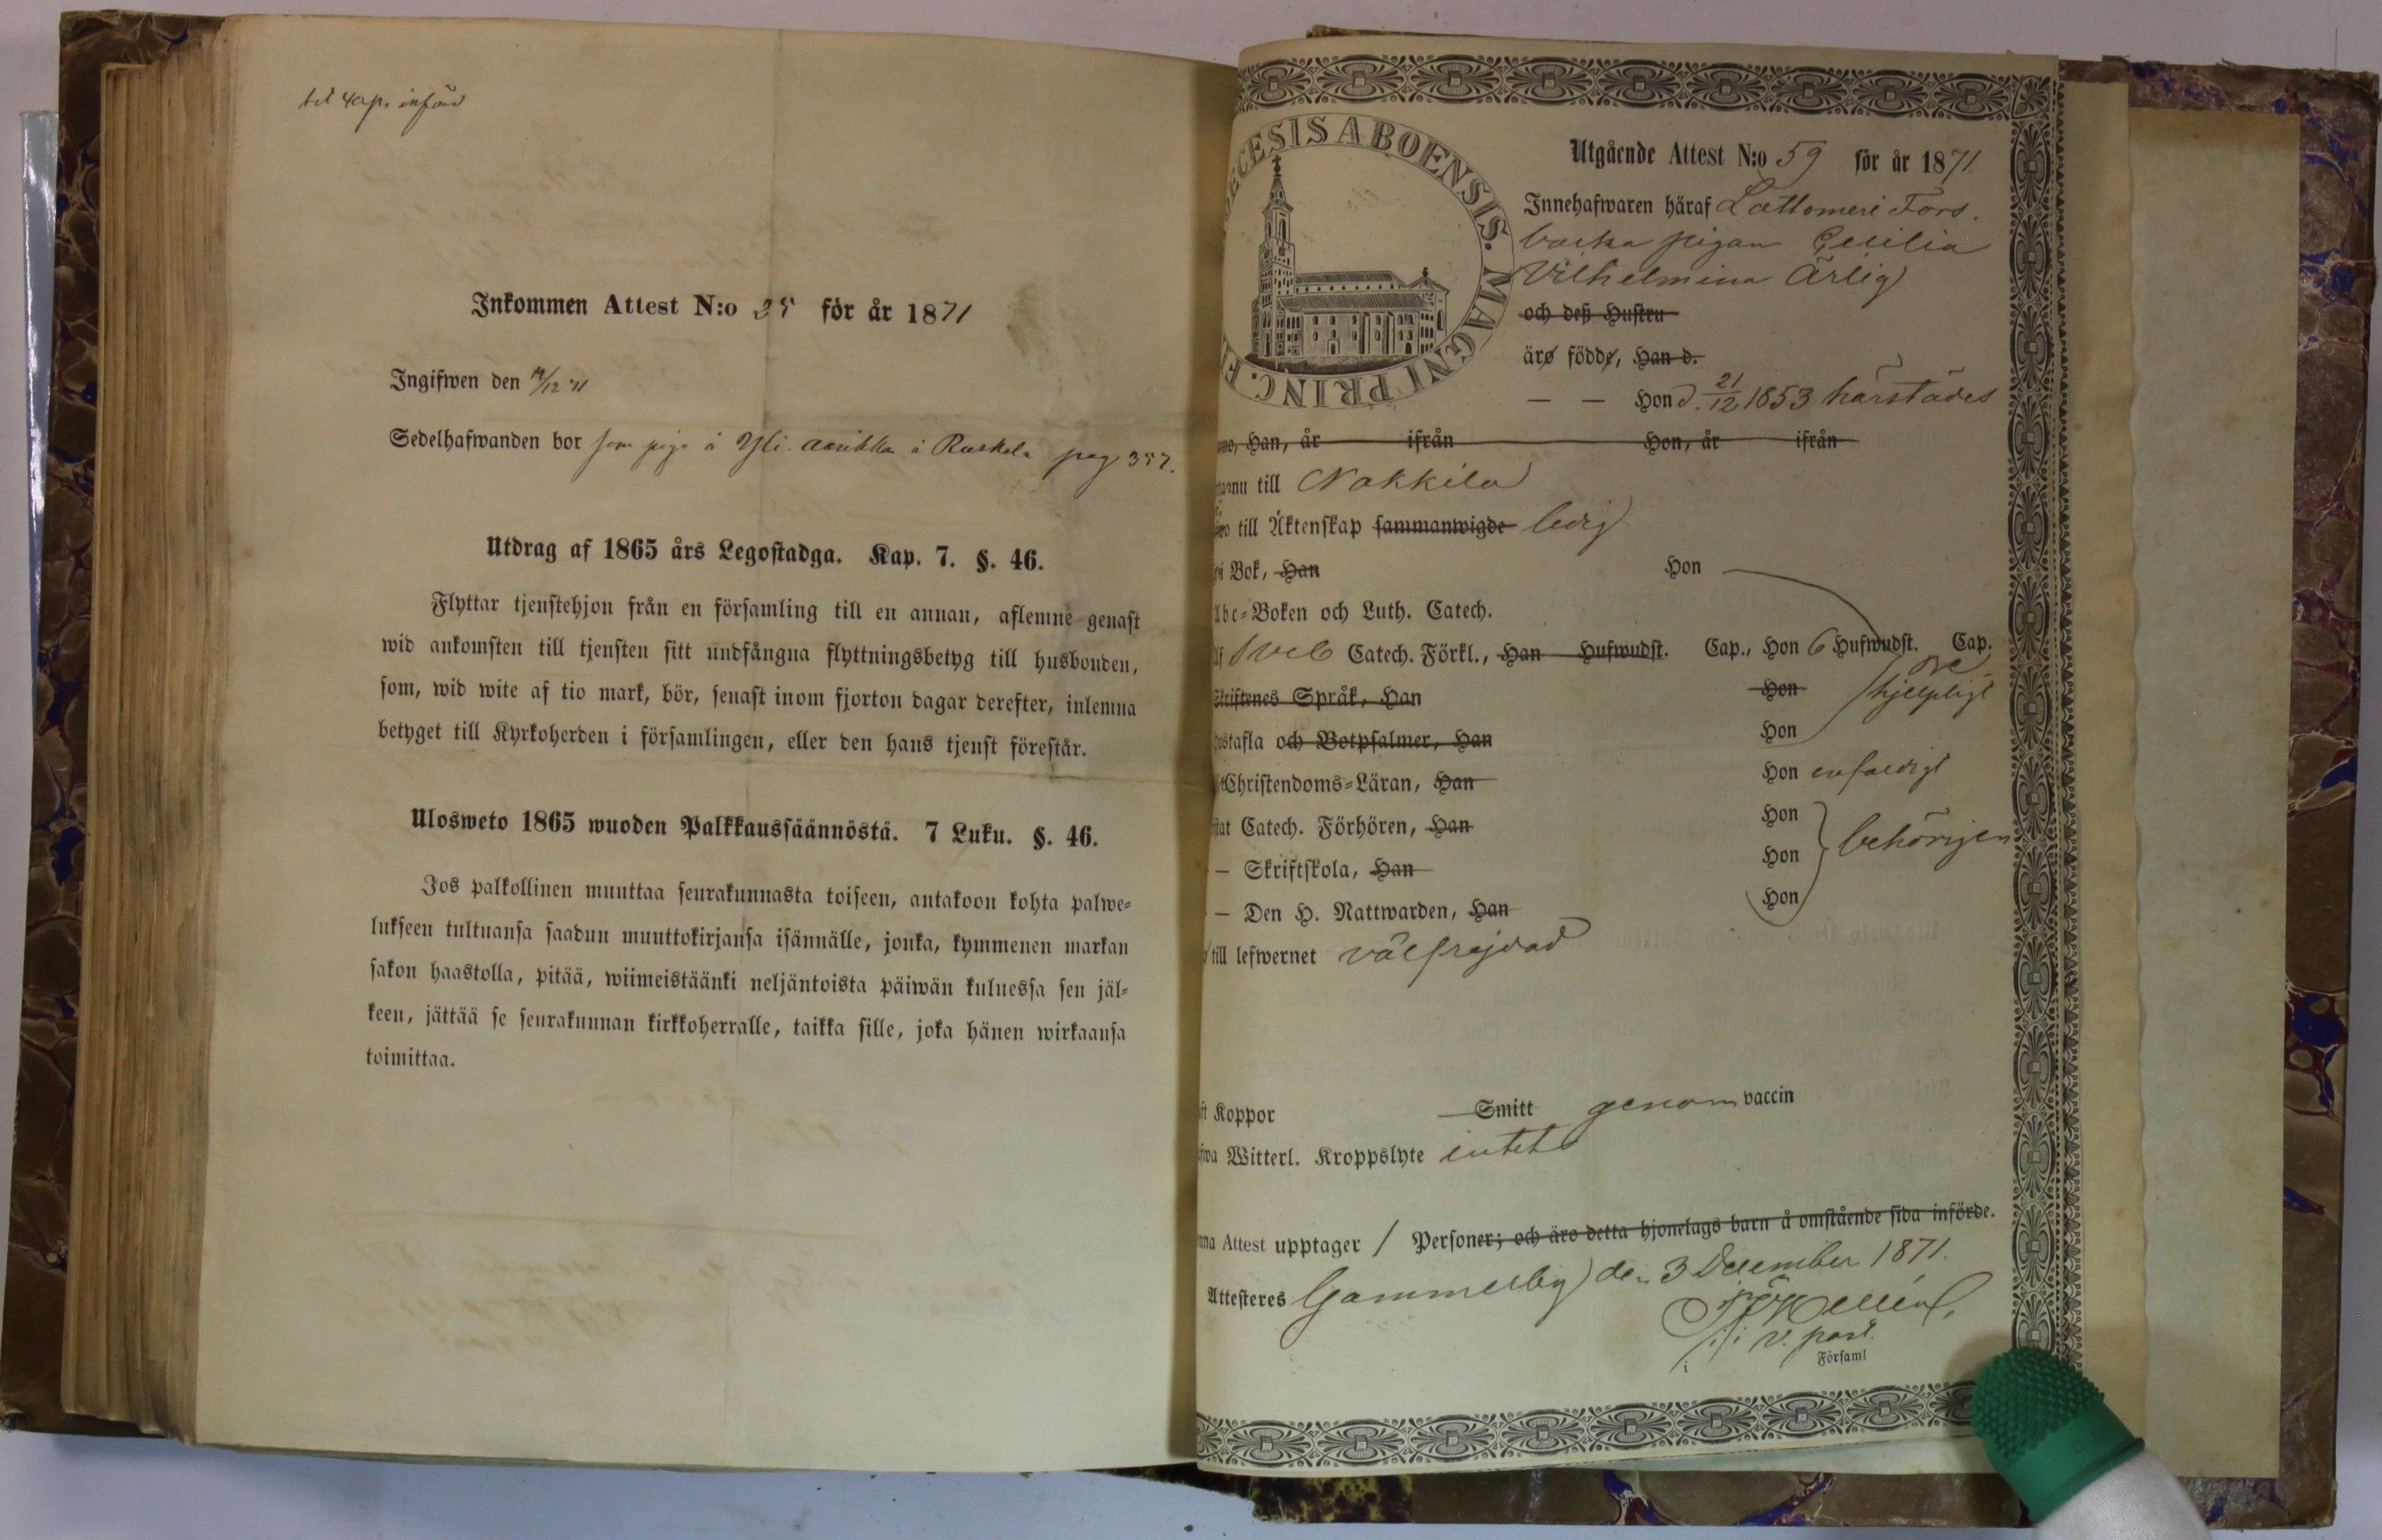 införd
Inkommen Attest N:o 35 för år 1871
Ingifwen den 14/12 71
Sedelhafwanden bor som piga å Yli i Ruskela pag 357.
Utdrag af 1865 års Legostadga. Kap. 7. §. 46.
Flyttar tjenstehjon från en församling till en annan, aflemne genast
wid ankomsten till tjensten sitt undfångna flyttningsbetyg till husbonden,
som, wid wite af tio mark, bör, senast inom fjorton dagar derefter, inlemna
betyget till Kyrkoherden i församlingen, eller den hans tjenst förestår.
Ulosweto 1865 wuoden Palkkaussäännöstä. 7 Luku. §. 46.
Jos palkollinen muuttaa seurakunnasta toiseen, antakoon kohta palwe-
lukseen tultuansa saadun muuttokirjansa isännälle, jonka, kymmenen markan
sakon haastolla, pitää, wiimeistäänki neljäntoista päiwän kuluessa sen jäl-
keen, jättää se seurakunnan kirkkoherralle, taikka sille, joka hänen wirkaansa
toimittaa.
CESIS ABOENSIS. MAGNI PRINC. F
Utgående Attest N:o 59 för år 1871
Innehafwaren häraf Lattomeri Fors-
backa pigan Cecilia
Vilhelmina Ärlig
och deß Hustru
äro födde, Han d.
— — Hon d. 21/12 1853 härstädes
Han, år ifrån Hon, år ifrån
nu till Nakkila
till Äktenskap sammanwigde ledig
i Bok, Han Hon
Abc-Boken och Luth. Catech.
Sveb Catech. Förkl., Han Hufwudst. Cap., Hon 6 Hufwudst. Cap.
Skriftenes Språk, Han Hon hjelpligt
Hustafla och Botpsalmer, Han Hon
Christendoms-Läran, Han Hon enfaldigt
Catech. Förhören, Han Hon
— Skriftskola, Han Hon behörigen
— Den H. Nattwarden, Han Hon
till lefwernet välfrejdad
Koppor Smitt genom vaccin
Witterl. Kroppslyte intet
Attest upptager 1 Personer; och äro detta hjonelags barn å omstående sida införde.
Attesteres Gammelby den 3 December 1871.
v. past.
Församl